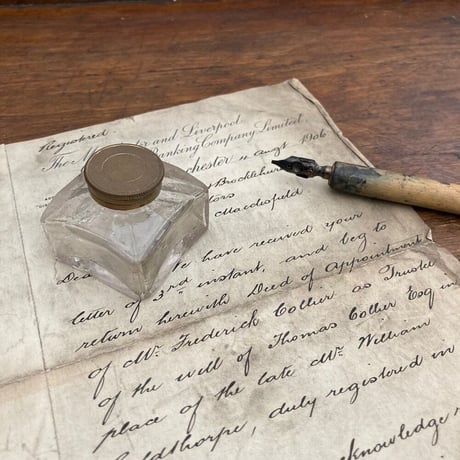 Registered.
The Man and Liverpool
Banking Company Limited
chester 4 Augt 1906
Brocklehur
tors
Macclesfield
Dea
We have received your
letter of 3rd instant, and beg to
return herewith Deed of Appointment
of Mr. Frederick Collier as Trustee
of the will of Thomas Collier Esq in
place of the late Mr. William
ldthorpe, duly registered in
cknowledge